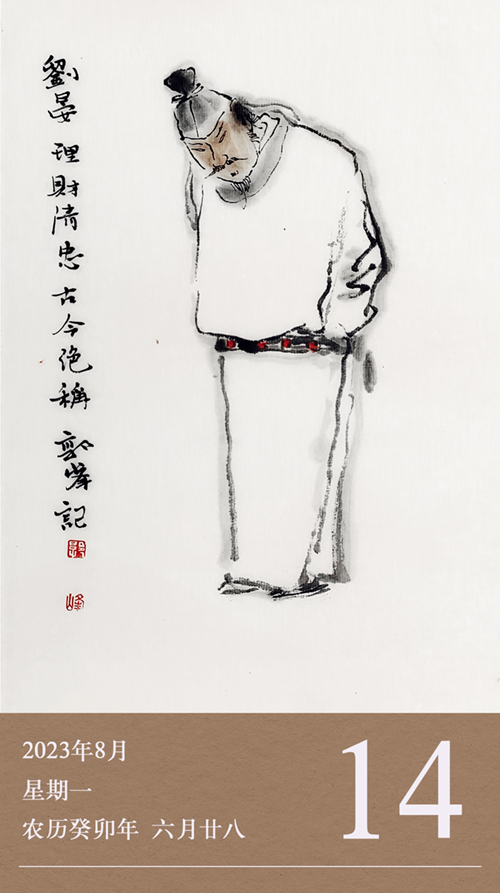 劉晏 理財清忠古今絶稱 峯記
峰
2023年8月
星期一
农历癸卯年 六月廿八
14